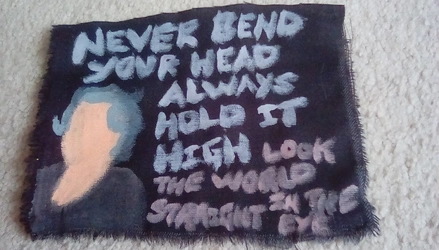 NEVER BEND
YOUR HEAD
ALWAYS
HOLD IT
HIGH LOOK
THE WORLD
STRAIGHT IN THE
EYE